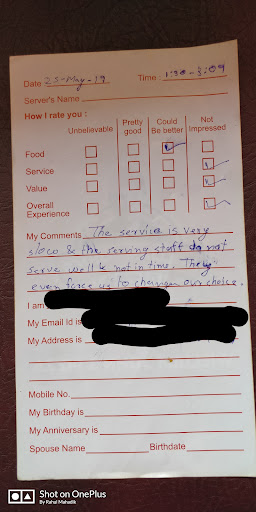 Date 25-May-19 Time: 1:30 - 3:09
Server's Name
How I rate you :
Unbelievable Pretty good Could Be better Not Impressed
Food
Service
Value
Overall Experience
My Comments The service is very
slow & the serving staff do not
serve well & not in time. They
even force us to change our choice.
I am
My Email Id is
My Address is
Mobile No.
My Birthday is
My Anniversary is
Spouse Name Birthdate
Shot on OnePlus
By Rahul Mahadik